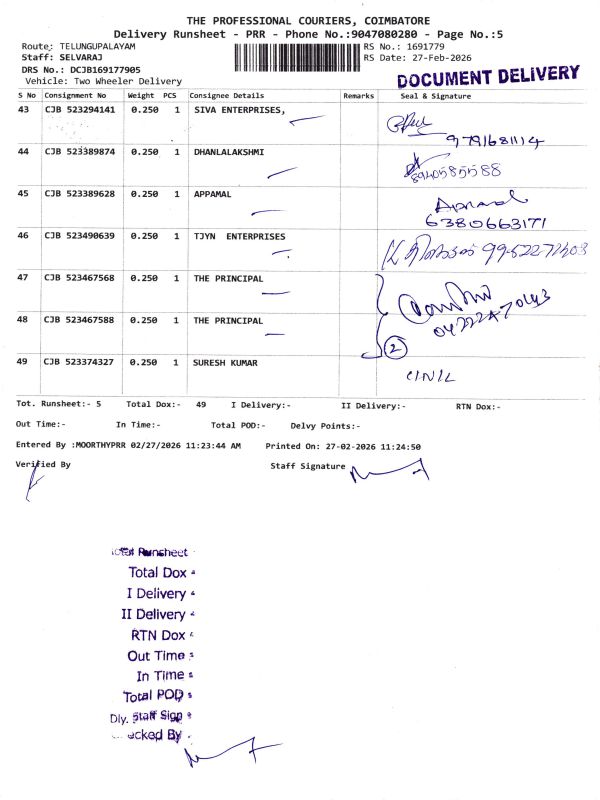 THE PROFESSIONAL COURIERS, COIMBATORE
Delivery Runsheet - PRR - Phone No.:9047080280 - Page No.:5
Route: TELUNGUPALAYAM
RS No.: 1691779
Staff: SELVARAJ
RS Date: 27-Feb-2026
DRS No.: DCJB169177905
Vehicle: Two Wheeler Delivery
DOCUMENT DELIVERY
S No Consignment No Weight PCS Consignee Details Remarks Seal & Signature
43 CJB 523294141 0.250 1 SIVA ENTERPRISES,
9791681114
44 CJB 523389874 0.250 1 DHANLALAKSHMI
8940585588
45 CJB 523389628 0.250 1 APPAMAL
6380663171
46 CJB 523490639 0.250 1 TJYN ENTERPRISES
47 CJB 523467568 0.250 1 THE PRINCIPAL
48 CJB 523467588 0.250 1 THE PRINCIPAL
2
49 CJB 523374327 0.250 1 SURESH KUMAR
Tot. Runsheet:- 5 Total Dox:- 49 I Delivery:- II Delivery:- RTN Dox:-
Out Time:- In Time:- Total POD:- Delvy Points:-
Entered By :MOORTHYPRR 02/27/2026 11:23:44 AM Printed On: 27-02-2026 11:24:50
Verified By Staff Signature
Runsheet
Total Dox
I Delivery
II Delivery
RTN Dox
Out Time
In Time
Total POD
Dly. Staff Sign
By